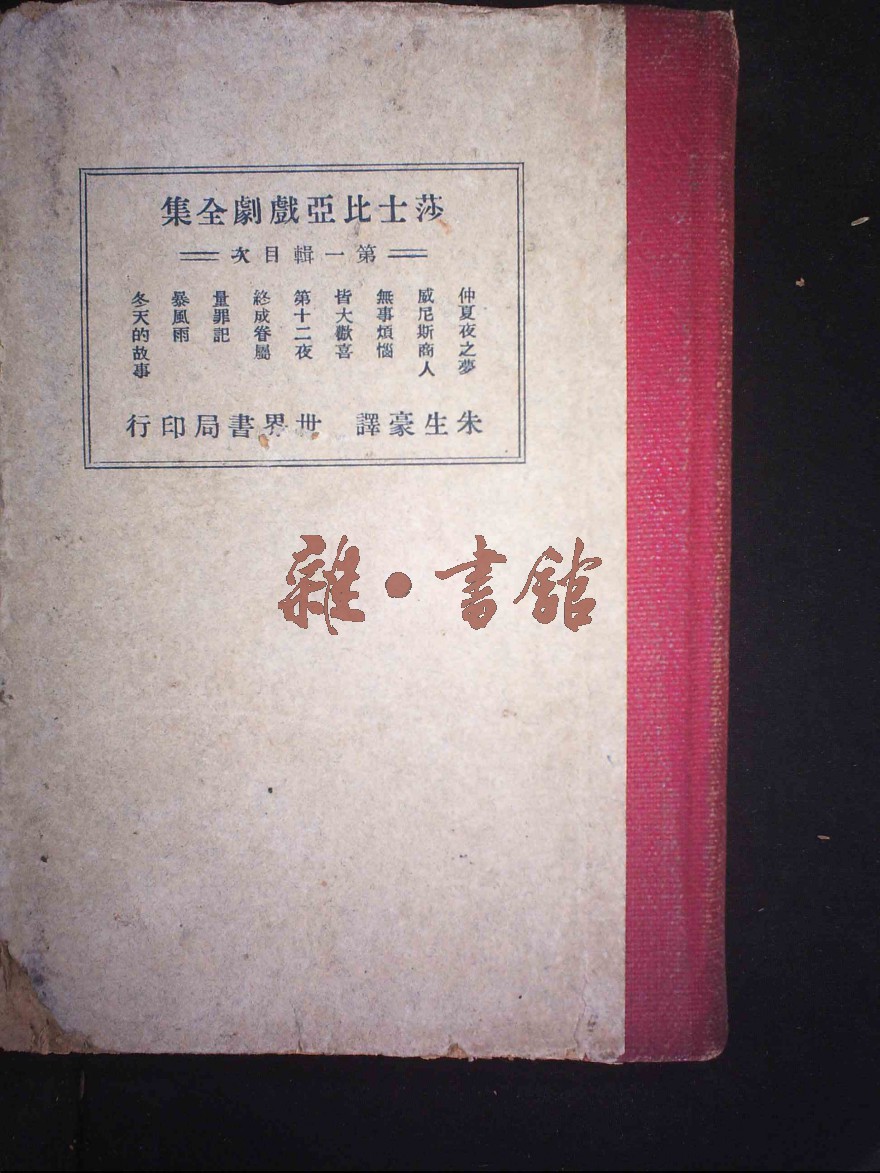 莎士比亞戲劇全集
第一輯目次
仲夏夜之夢
威尼斯商人
無事煩惱
皆大歡喜
第十二夜
終成眷屬
量罪記
暴風雨
冬天的故事
朱生豪譯 世界書局印行
雜·書館